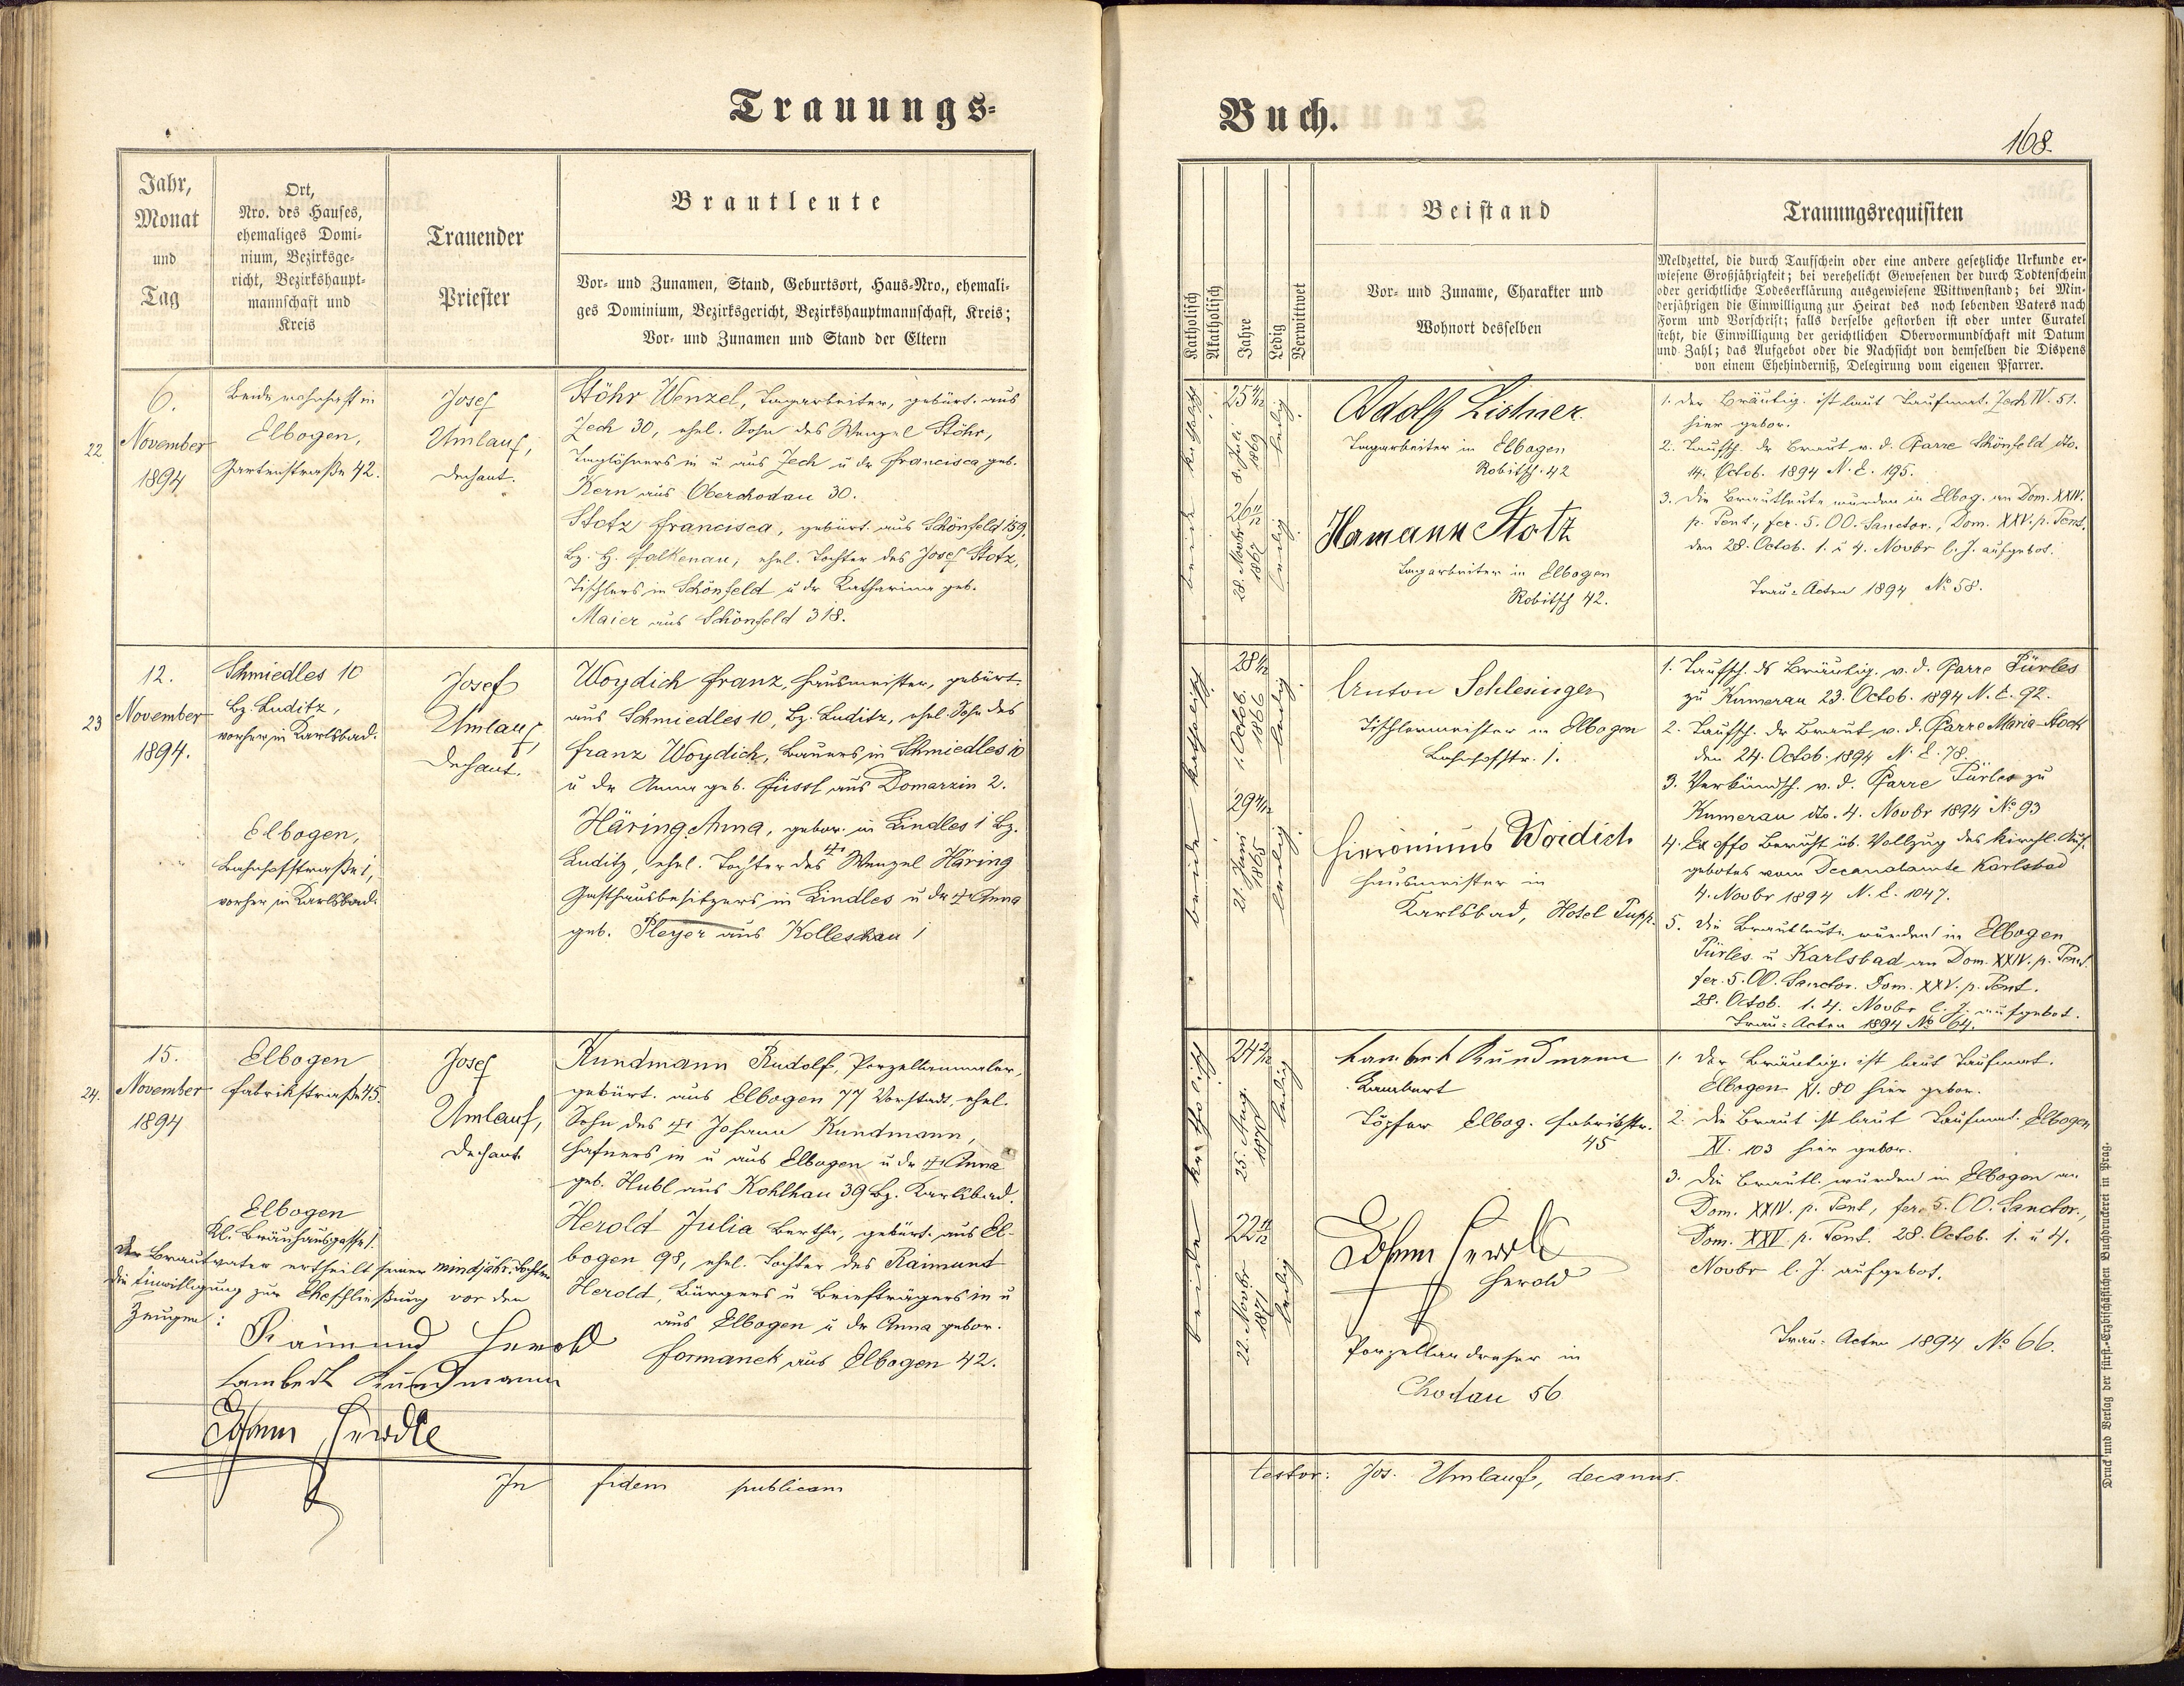 Trauungs-
Jahr,
Monat
und
Tag
Ort,
Nro. des Hauses,
ehemaliges Domi-
nium, Bezirksge-
richt, Bezirkshaupt-
mannschaft und
Kreis
Trauender
Priester
Brautleute
Vor- und Zunamen, Stand, Geburtsort, Haus-Nro., ehemali-
ges Dominium, Bezirksgericht, Bezirkshauptmannschaft, Kreis;
Vor- und Zunamen und Stand der Eltern
22
6.
November
1894
Beide wohnhaft in
Elbogen,
Gartenstraße 42.
Josef
Umlauf,
Dechant.
Stöhr Wenzel, Tagarbeiter, gebürt. aus
Zech 30, ehel. Sohn des Wenzel Stöhr,
Taglöhners in u aus Zech u der Francisca geb.
Kern aus Oberchodau 30.
Stotz Francisca, gebürt. aus Schönfeld 159,
Bz. H. Falkenau, ehel. Tochter des Josef Stotz,
Tischlers in Schönfeld u der Katharina geb.
Maier aus Schönfeld 318.
23
12.
November
1894.
Schmiedles 10
Bz. Luditz,
vorher in Karlsbad.
Elbogen,
Bahnhofstraße 1,
vorher in Karlsbad.
Josef
Umlauf,
Dechant.
Woydich Franz, Hausmeister, gebürt.
aus Schmiedles 10, Bz. Luditz, ehel. Sohn des
Franz Woydich, Bauers in Schmiedles 10
u der Anna geb. Füssl aus Domarzin 2.
Häring Anna, gebor. in Lindles 1 Bz.
Luditz, ehel. Tochter des † Wenzel Häring
Gasthausbesitzers in Lindles u der † Anna
geb. Pleyer aus Kolleschau 1
24.
15.
November
1894
Elbogen
Fabrikstraße 45.
Elbogen
Kl. Bräuhausgasse 1.
Josef
Umlauf,
Dechant
Kundmann Rudolf, Porzellanmaler,
gebürt. aus Elbogen 77 Vorstadt, ehel.
Sohn des † Johann Kundmann,
Hafners in u aus Elbogen u der † Anna
geb. Hubl aus Kohlhau 39 Bz. Karlsbad.
Herold Julia Bertha, gebürt. aus El-
bogen 98, ehel. Tochter des Raimund
Herold, Bürgers u Briefträgers in u
aus Elbogen u der Anna gebor.
Formanek aus Elbogen 42.
Der Brautvater ertheilt seiner mindjähr. Tochter
die Einwilligung zur Eheschließung vor den
Zeugen:
Raimund Herold
Lambert Kundmann
Johann Herold
In fidem publicam
Buch.
168.
Katholisch
Akatholisch
Jahre
Ledig
Verwittwet
Beistand
Vor- und Zuname, Charakter und
Wohnort desselben
Trauungsrequisiten
Meldzettel, die durch Taufschein oder eine andere gesetzliche Urkunde er-
wiesene Großjährigkeit; bei verehelicht Gewesenen der durch Todtenschein
oder gerichtliche Todeserklärung ausgewiesene Wittwenstand; bei Min-
derjährigen die Einwilligung zur Heirat des noch lebenden Vaters nach
Form und Vorschrift; falls derselbe gestorben ist oder unter Curatel
steht, die Einwilligung der gerichtlichen Obervormundschaft mit Datum
und Zahl; das Aufgebot oder die Nachsicht von demselben die Dispens
von einem Ehehinderniß, Delegirung vom eigenen Pfarrer.
beide katholisch
25 4/12
8. Juli
1869
ledig
26 11/12
28. Novbr
1867
ledig
Adolf Lichner
Tagarbeiter in Elbogen
Robitsch. 42
Hamann Stotz
Tagarbeiter in Elbogen
Robitsch 42.
1. Der Bräutig. ist laut Taufmat. Zech IV. 51.
hier gebor.
2. Taufsch. der Braut v. d. Pfarre Schönfeld dto.
14. Octob. 1894 N. E. 195.
3. Die Brautleute wurden in Elbog. an Dom. XXIV.
p. Pent., fer. 5. OO. Sanctor., Dom. XXV. p. Pent.
den 28. Octob. 1. u 4. Novbr l. J. aufgebot.
Trau-Acten 1894 No 58.
beide katholisch
28 1/12
1. Octob.
1866
ledig
29 4/12
21. Juni
1865
ledig
Anton Schlesinger
Tischlermeister in Elbogen
Bahnhofstr. 1.
Hieronimus Woidich
Hausmeister in
Karlsbad, Hotel Pupp.
1. Taufsch. ds Bräutig. v. d. Pfarre Pürles
zu Kumerau 23. Octob. 1894 N. E. 92.
2. Taufsch. der Braut v. d. Pfarre Maria-Stock
den 24. Octob. 1894 N. E. 78.
3. Verkündsch. v. d. Pfarre Pürles zu
Kumerau dto. 4. Novbr 1894 No 93
4. Ex offo Bericht üb. Vollzug des kirchl. Auf-
gebotes vom Decanalamte Karlsbad
4. Novbr 1894 N. E. 1047.
5. Die Brautleute wurden in Elbogen
Pürles u Karlsbad an Dom. XXIV. p. Pent.
fer. 5. OO. Sanctor. Dom. XXV. p. Pent.
28. Octob. 1. 4. Novbr l. J. aufgebot.
Trau-Acten 1894 No 64.
beide katholisch
24 2/12
25. Aug.
1870
ledig
22 11/12
22. Novbr
1871
ledig
Lambert Kundmann
Lambert
Töpfer Elbog. Fabrikstr.
45
Johann Herold
Herold
Porzellandreher in
Chodau 56
1. Der Bräutig. ist laut Taufmat.
Elbogen XI. 80 hier gebor.
2. Die Braut ist laut Taufmat. Elbogen
XI. 103 hier gebor.
3. Die Brautl. wurden in Elbogen an
Dom. XXIV. p. Pent, fer. 5. OO. Sanctor.,
Dom. XXV p. Pent. 28. Octob. 1. u 4.
Novbr l. J. aufgebot.
Trau-Acten 1894 No 66.
testor: Jos. Umlauf, decanus.
Druck und Verlag der fürst.-Erzbischäflichen Buchdruckerei in Prag.